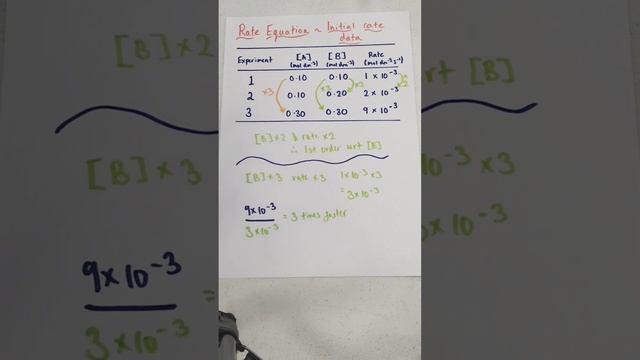 Rate Equation ~ Initial rate
data
Experiment [A] (mol dm⁻³) [B] (mol dm⁻³) Rate (mol dm⁻³ s⁻¹)
1 0.10 0.10 1 × 10⁻³
2 0.10 0.20 2 × 10⁻³
3 0.30 0.30 9 × 10⁻³
×3 ×3 ×2 ×2
[B]×2 & rate ×2
∴ 1st order wrt [B]
[B]×3 rate ×3 1×10⁻³ ×3
= 3×10⁻³
9×10⁻³
3×10⁻³ = 3 times faster
[B]×2
[B]×3
9×10⁻³
3×10⁻³ =
wrt [B]
10⁻³ ×3
×10⁻³